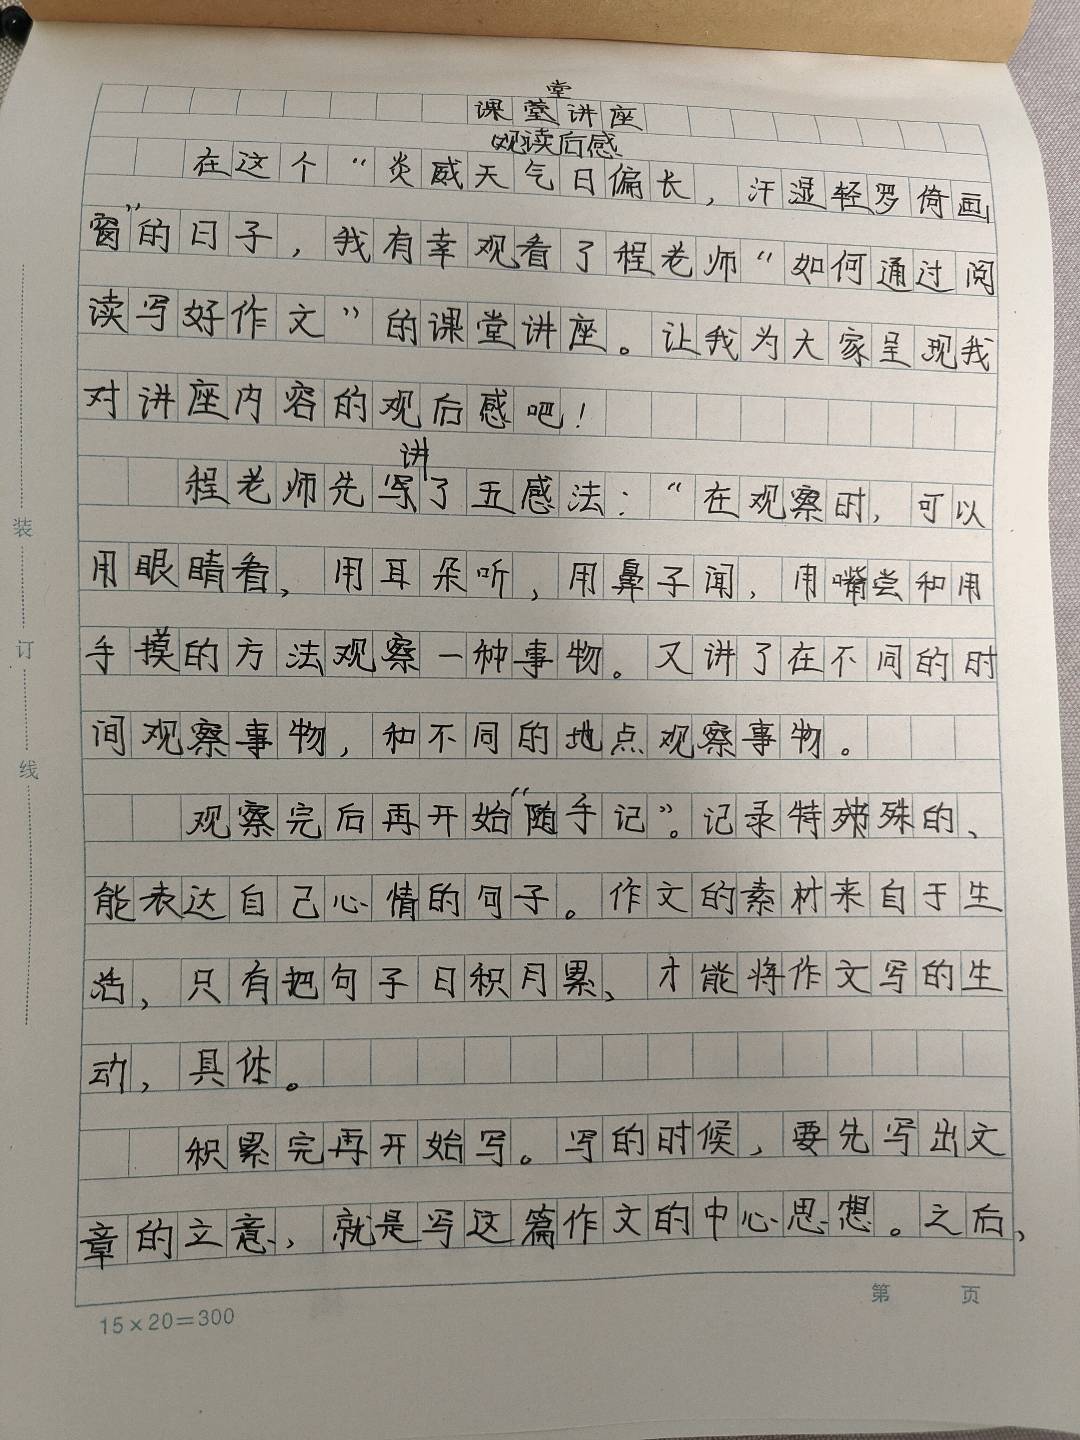 堂
课堂讲座
观读后感
在这个“炎威天气日偏长，汗湿轻罗倚画
窗”的日子，我有幸观看了程老师“如何通过阅
读写好作文”的课堂讲座。让我为大家呈现我
对讲座内容的观后感吧！
讲
程老师先写了五感法：“在观察时，可以
用眼睛看，用耳朵听，用鼻子闻，用嘴尝和用
手摸的方法观察一种事物。又讲了在不同的时
间观察事物，和不同的地点观察事物。
观察完后再开始“随手记”。记录特殊的、
能表达自己心情的句子。作文的素材来自于生
活，只有把句子日积月累、才能将作文写的生
动，具体。
积累完再开始写。写的时候，要先写出文
章的立意、就是写这篇作文的中心思想。之后、
装
订
线
第 页
15×20=300